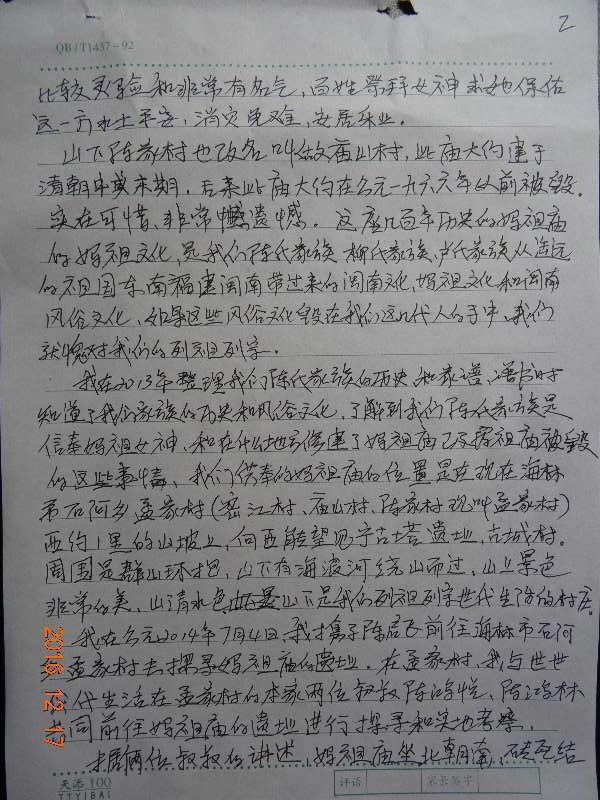 2
QB/T1437-92
比较灵验和非常有名气，百姓常拜女神求她保佑
这一方水土平安，消灾免难，安居乐业。
山下陈家村也改名叫做庙山村，此庙大约建于
清朝中末期，后来此庙大约在公元一九六六年以前被毁。
实在可惜、非常遗憾。这座几百年历史的妈祖庙
的妈祖文化，是我们陈氏家族、柳氏家族、卢氏家族从遥远
的祖国东南福建闽南带过来的闽南文化，妈祖文化和闽南
风俗文化，如果这些风俗文化毁在我们这几代人的手中，我们
就愧对我们的列祖列宗。
我在2013年整理我们陈氏家族的历史和家谱、谱书时
知道了我们家族的历史和风俗文化，了解到我们陈氏家族是
信奉妈祖女神，和在什么地方修建了妈祖庙以及妈祖庙被毁
的这些事情、我们供奉的妈祖庙的位置是在现在海林
市石河乡孟家村（密江村、庙山村、陈家村现叫孟家村）
西约1里的山坡上，向西能望见宁古塔遗址，古城村。
周围是群山环抱，山下有海浪河绕山而过，山上景色
非常的美、山清水色山下是我的列祖列宗世代生活的村庄。
我在公元2014年7月4日，我才携子陈启飞前往海林市石河
乡孟家村去探寻妈祖庙的遗址。在孟家村，我与世世
代生活在孟家村的本家两位叔叔陈鸿悦，陈鸿林
共同前往妈祖庙的遗址进行探寻和实地考察。
据俩位叔叔的讲述，妈祖庙坐北朝南，砖瓦结
2016.12.17
天添100
TTYIBAI
评语
家长签字